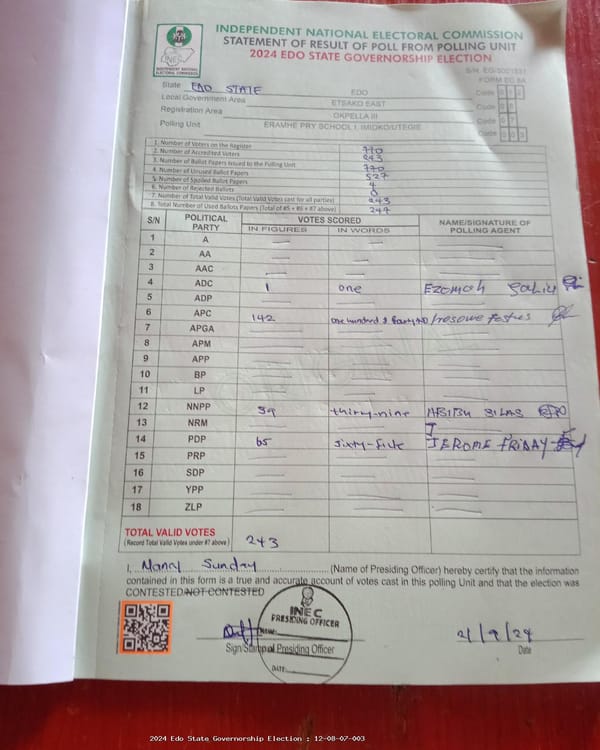 INDEPENDENT NATIONAL ELECTORAL COMMISSION
STATEMENT OF RESULT OF POLL FROM POLLING UNIT
2024 EDO STATE GOVERNORSHIP ELECTION
INEC
INDEPENDENT NATIONAL ELECTORAL COMMISSION
FORM EC 8A
State EDO STATE EDO Code
Local Government Area ETSAKO EAST Code
Registration Area OKPELLA III Code
Polling Unit ERAMHE PRY SCHOOL I, IMIOKO/UTEGIE Code
1. Number of Voters on the Register 770
2. Number of Accredited Voters 243
3. Number of Ballot Papers Issued to the Polling Unit 770
4. Number of Unused Ballot Papers 527
5. Number of Spoiled Ballot Papers 4
6. Number of Rejected Ballots 0
7. Number of Total Valid Votes (Total Valid Votes cast for all parties) 243
8. Total Number of Used Ballots Papers (Total of #5 + #6 + #7 above) 247
S/N POLITICAL PARTY VOTES SCORED NAME/SIGNATURE OF POLLING AGENT
IN FIGURES IN WORDS
1 A
2 AA
3 AAC
4 ADC 1 one EZOMOH
5 ADP
6 APC 142
7 APGA
8 APM
9 APP
10 BP
11 LP
12 NNPP 39 thirty-nine SILAS
13 NRM
14 PDP 65 sixty-five JEROME FRIDAY
15 PRP
16 SDP
17 YPP
18 ZLP
TOTAL VALID VOTES
(Record Total Valid Votes under #7 above) 243
I, Sunday (Name of Presiding Officer) hereby certify that the information
contained in this form is a true and accurate account of votes cast in this polling Unit and that the election was
CONTESTED/NOT CONTESTED
INEC
PRESIDING OFFICER
Sign/Stamp of Presiding Officer
DATE:
21/9/24
Date
2024 Edo State Governorship Election : 12-08-07-003